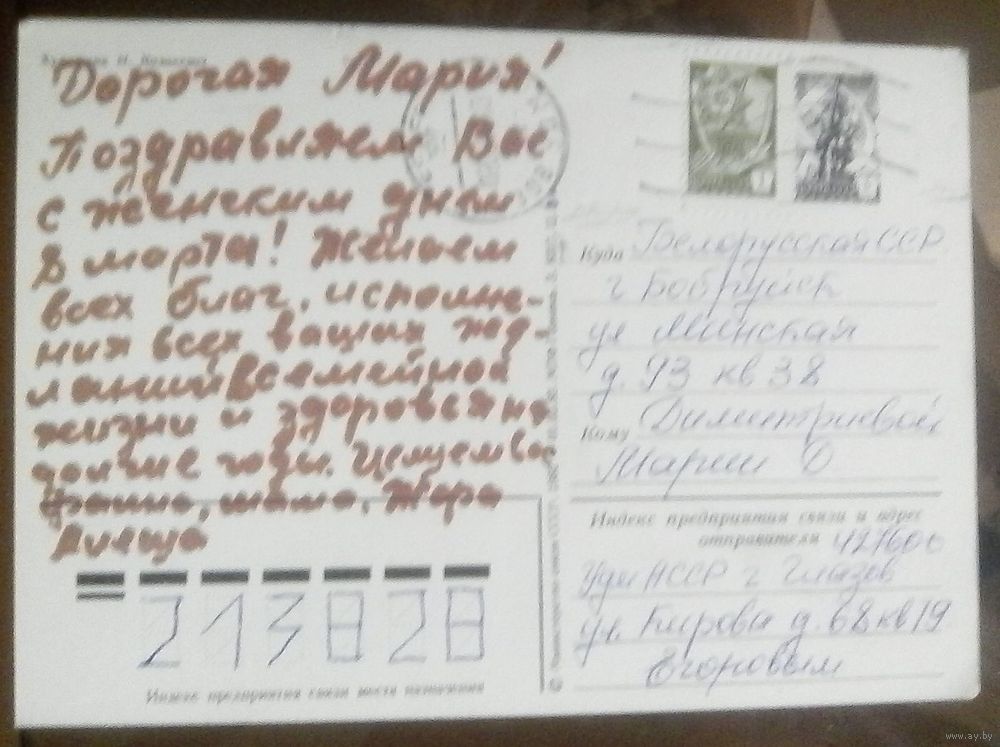 Дорогая Мария!
Поздравляем Вас
с женским днем
8 марта! Желаем
всех благ, исполне-
ния всех ваших же-
ланий в семейной
жизни и здоровья на
долгие годы. Целуем вас
мама, Жора
Куда Белорусская ССР
г Бобруйск
ул Минская
д. 93 кв 38
Кому Димитриевой
Марии О
Индекс предприятия связи и адрес
отправителя 427600
Удм АССР г Глазов
ул. Кирова д. 68 кв 19
Егоровым
213828
Индекс предприятия связи места назначения
www.ay.by